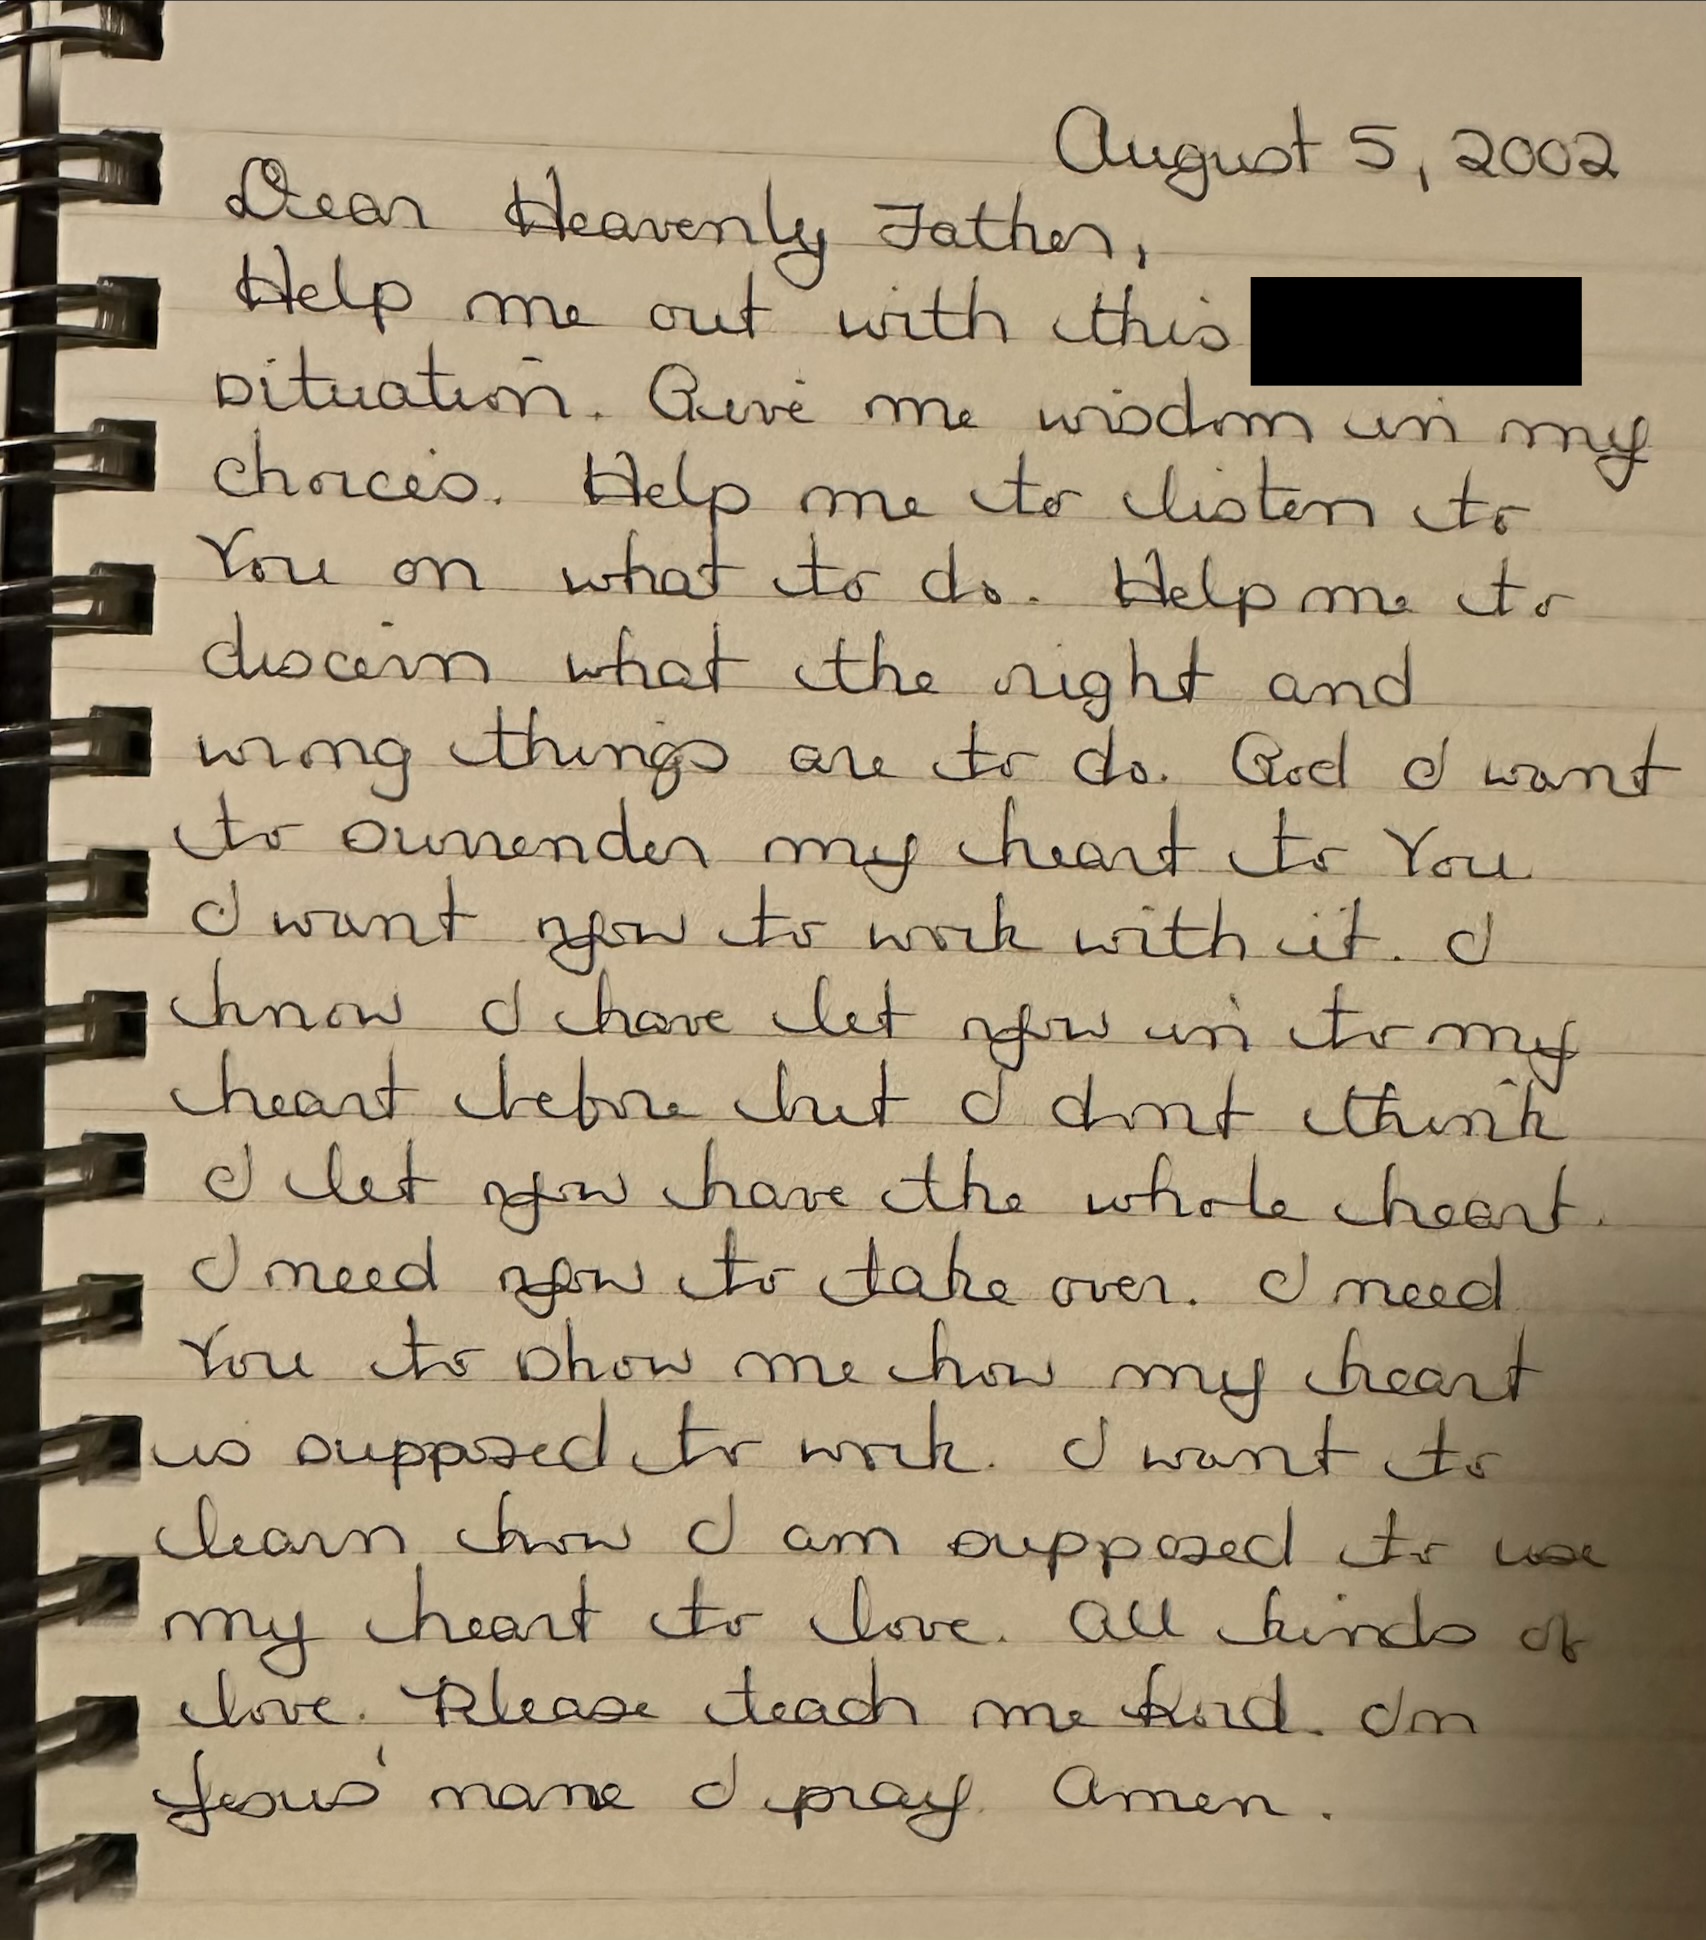 August 5, 2002
Dear Heavenly Father,
Help me out with this
situation. Give me wisdom in my
choices. Help me to listen to
You on what to do. Help me to
discern what the right and
wrong things are to do. God I want
to surrender my heart to You
I want you to work with it. I
know I have let you in to my
heart before but I dont think
I let you have the whole heart.
I need you to take over. I need
You to show me how my heart
is supposed to work. I want to
learn how I am supposed to use
my heart to love. All kinds of
love. Please teach me Lord. In
Jesus' name I pray. Amen.